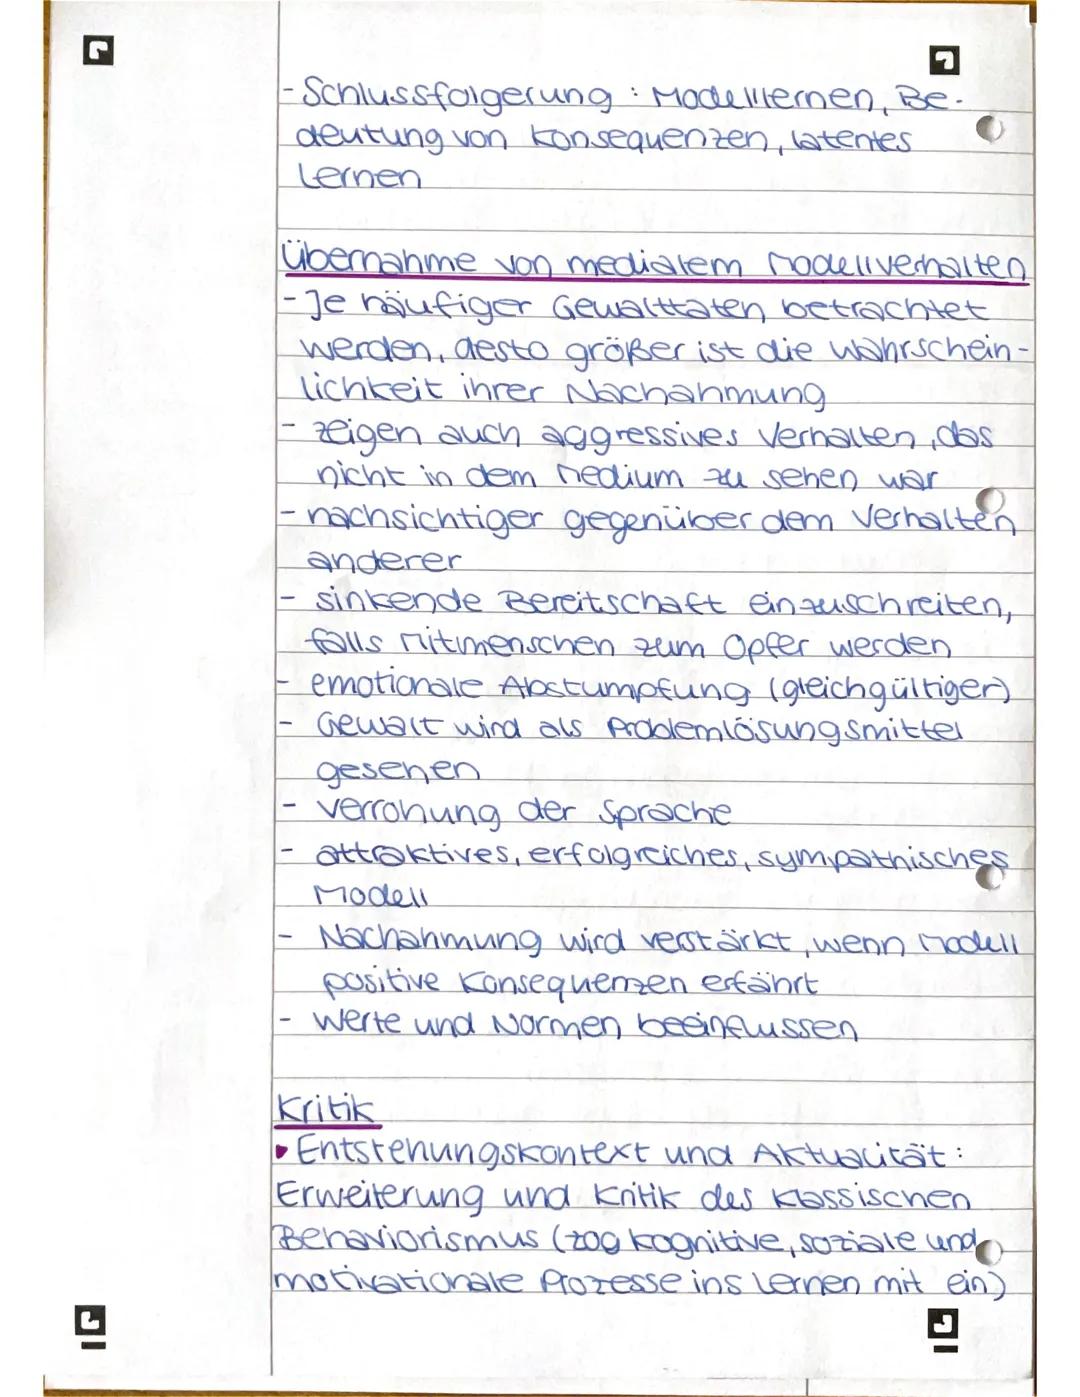 - Schlussfolgerung : Modelllernen, Be-
deutung von Konsequenzen, latentes
Lernen
Übernahme von medialem Modellverhalten
- Je häufiger Gewalttaten betrachtet
werden, desto größer ist die Wahrschein-
lichkeit ihrer Nachahmung
- zeigen auch aggressives Verhalten, das
nicht in dem Medium zu sehen war
- nachsichtiger gegenüber dem Verhalten
anderer
- sinkende Bereitschaft einzuschreiten,
falls Mitmenschen zum Opfer werden
- emotionale Abstumpfung (gleichgültiger)
- Gewalt wird als Problemlösungsmittel
gesehen
- Verrohung der Sprache
- attraktives, erfolgreiches, sympathisches
Modell
- Nachahmung wird verstärkt, wenn Modell
positive Konsequenzen erfährt
- Werte und Normen beeinflussen
Kritik
• Entstehungskontext und Aktualität :
Erweiterung und Kritik des klassischen
Behaviorismus (zog kognitive, soziale und
motivationale Prozesse ins Lernen mit ein)